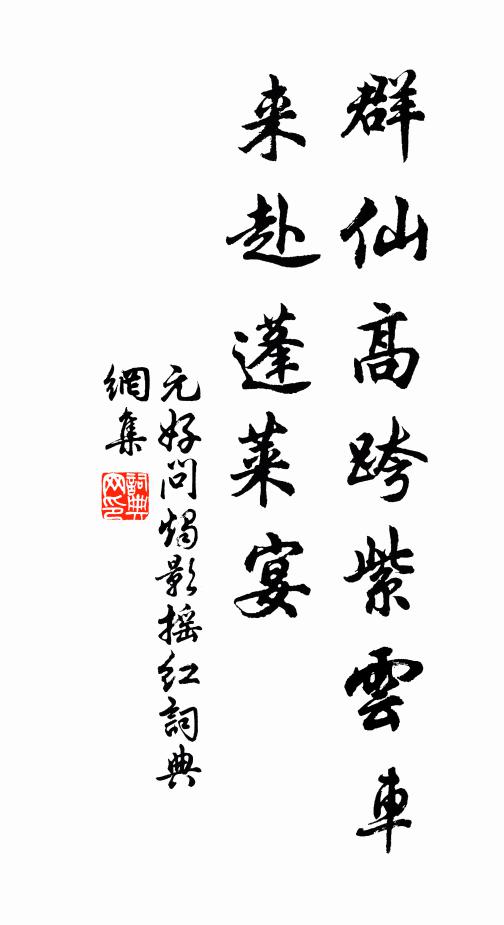 群仙高跨紫雲車
来赴蓬莱宴
元好问燭影摇红詞典
網集
詞典
网印